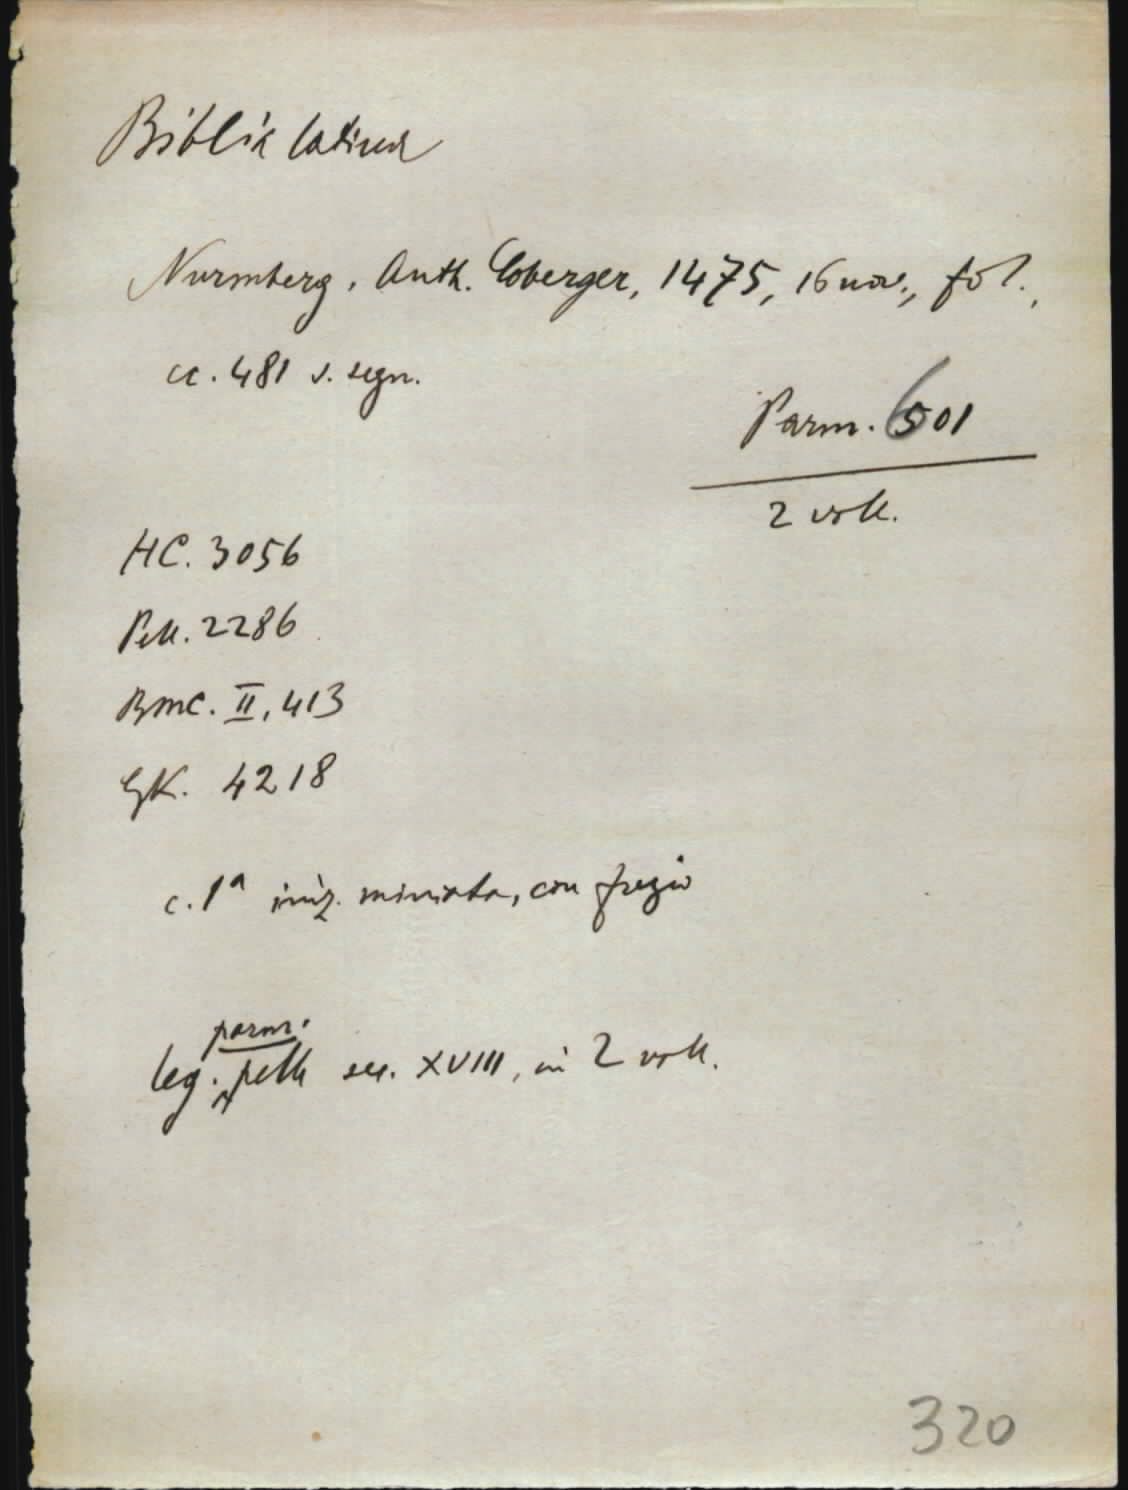 Biblia latina
Nurmberg, Anth. Coberger, 1475, 16 nov., fol.,
cc. 481 s. segn.
Parm. 6501
2 voll.
HC. 3056
Pell. 2286
BMC. II, 413
GK. 4218
c. 1ª iniz. miniata, con fregio
parm.
leg. pelle sec. XVIII, in 2 voll.
320